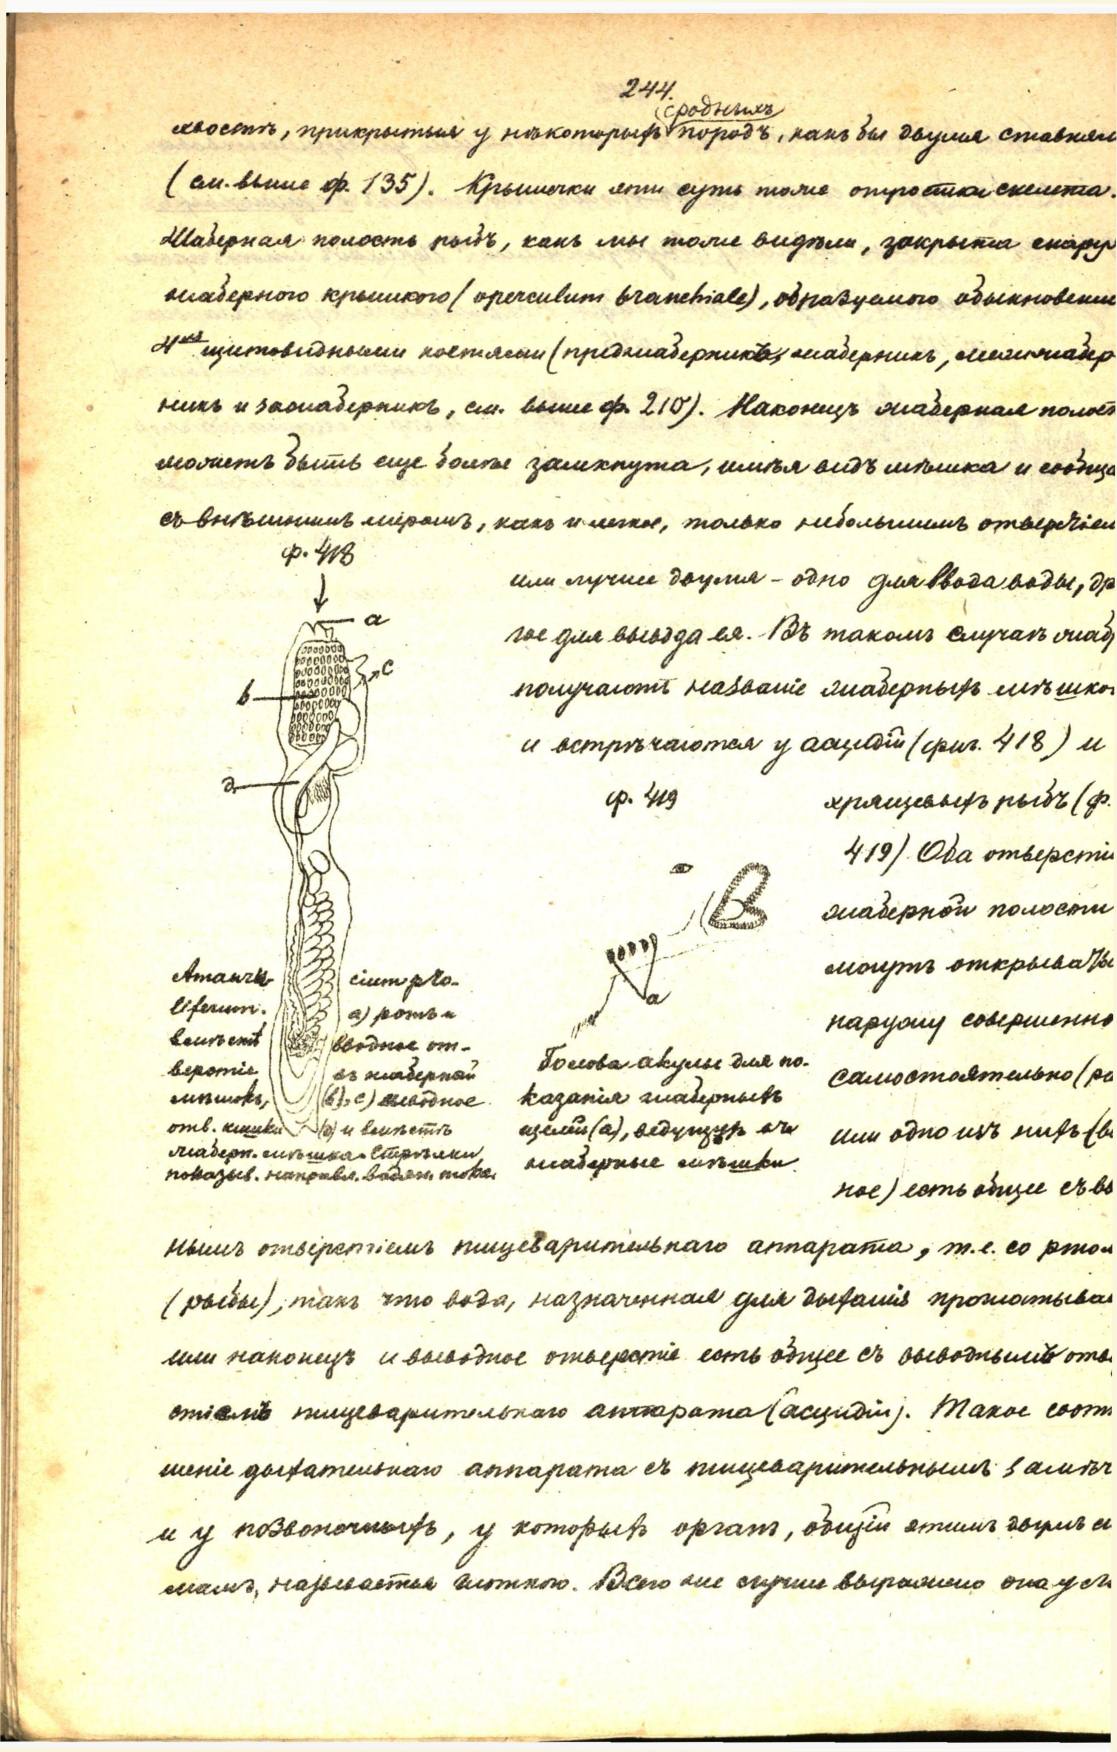 244.
сродныхъ
хвостъ, прикрытыя у нѣкоторыхъ породъ, какъ бы двумя ставням
(см. выше ф. 135). Крышечки эти суть тоже отростки скелета.
Жаберная полость рыбъ, какъ мы тоже видѣли, закрыта снару
жаберною крышкою (operculum branchiale), образуемою обыкновенно
4мя щитовидными костями (преджаберникъ, жаберникъ, межжабер
никъ и зажаберникъ, см. выше ф. 210). Наконецъ жаберная полост
можетъ быть еще болѣе замкнута, имѣя видъ мѣшка и сообща
съ внѣшнимъ міромъ, какъ и легкое, только небольшимъ отверстіем
ф. 418
или лучше двумя – одно для ввода воды, др
гое для вывода ея. Въ такомъ случаѣ жаб
получаютъ названіе жаберныхъ мѣшко
и встрѣчаются у асцидій (фиг. 418) и
a
c
b
д
ф. 419
хрящевыхъ рыбъ (ф.
419) Оба отверстія
жаберной полости
могутъ открывать
наружу совершенно
самостоятельно (
или одно изъ нихъ (в
ное) есть общее съ вв
a
liferum.
a) ротъ и
вмѣстѣ вводное от-
верстіе въ жаберной
мѣшокъ, (b), c) выводное
отв. кишки (д) и вмѣстѣ
жаберн. мѣшка. Стрѣлки
показыв. направл. водян. тока.
Голова акулы для по-
казанія жаберныхъ
щелей (a), ведущихъ въ
жаберные мѣшки
нымъ отверстіемъ пищеварительнаго аппарата, т.е. со ртом
(рыбы), такъ что вода, назначенная для дыханія проглатывае
или наконецъ и выводное отверстіе есть общее съ выводнымъ отве
стіемъ пищеварительнаго аппарата (асцидіи). Такое соотн
шеніе дыхательнаго аппарата съ пищеварительнымъ замѣч
и у позвоночныхъ, у которыхъ органъ, общій этимъ двумъ си
мамъ, называется глоткою. Всего же лучше выражено она у